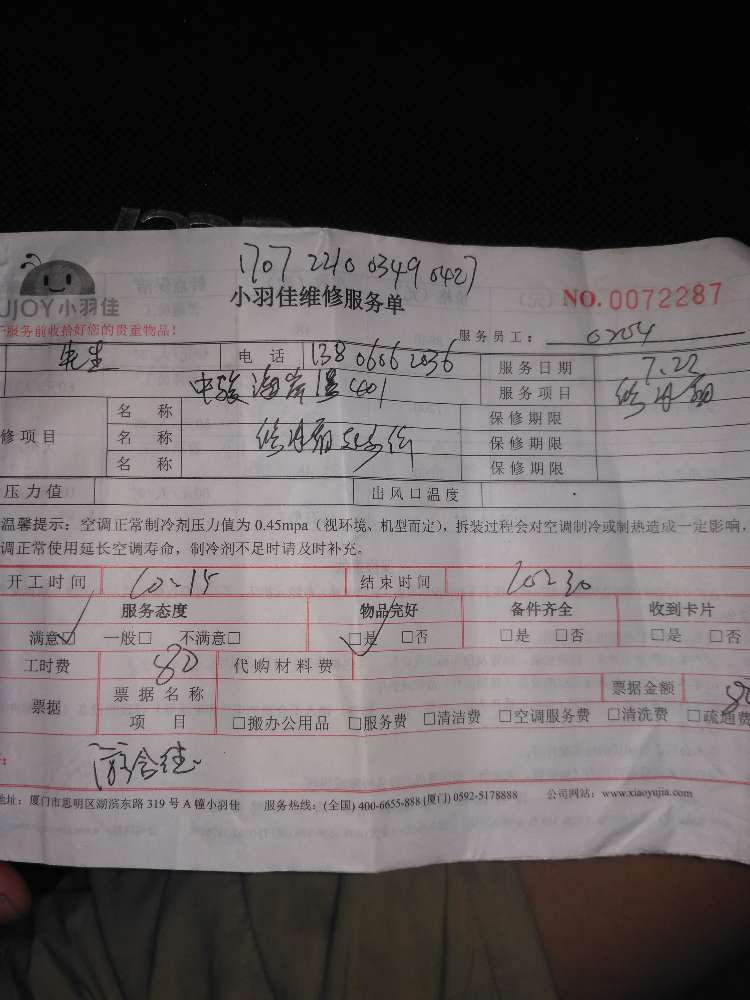 1707 2210 0349 0427
UJOY小羽佳 小羽佳维修服务单 NO.0072287
服务前收拾好您的贵重物品! 服务员工: 0204
先生 电话 138 0606 2036 服务日期 7.22
中骏海岸 401 服务项目
名称 保修期限
修项目 名称 保修期限
名称 保修期限
压力值 出风口温度
温馨提示:空调正常制冷剂压力值为 0.45mpa(视环境、机型而定),拆装过程会对空调制冷或制热造成一定影响,
调正常使用延长空调寿命,制冷剂不足时请及时补充。
开工时间 10:15 结束时间 10:30
服务态度 物品完好 备件齐全 收到卡片
满意☑ 一般□ 不满意□ □是 □否 □是 □否 □是 □否
工时费 80 代购材料费
票据 票据名称 票据金额 80
项目 □搬办公用品 □服务费 □清洁费 □空调服务费 □清洗费 □疏通费
地址:厦门市思明区湖滨东路 319 号 A 幢小羽佳 服务热线:(全国) 400-6655-888 (厦门) 0592-5178888 公司网站:www.xiaoyujia.com